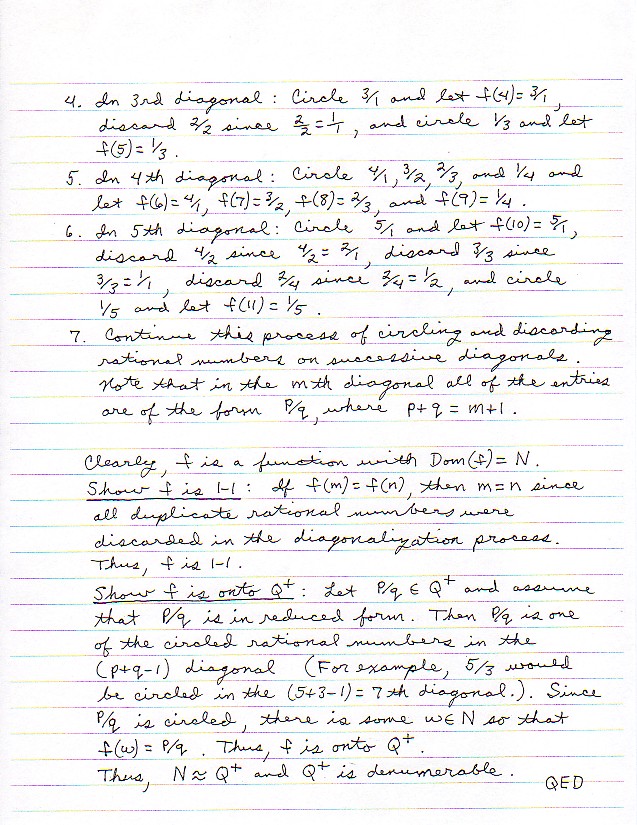 4. In 3rd diagonal: Circle 3/1 and let f(4)= 3/1,
discard 2/2 since 2/2 = 1/1, and circle 1/3 and let
f(5) = 1/3.
5. In 4th diagonal: Circle 4/1, 3/2, 2/3, and 1/4 and
let f(6) = 4/1, f(7) = 3/2, f(8) = 2/3, and f(9) = 1/4.
6. In 5th diagonal: Circle 5/1 and let f(10) = 5/1,
discard 4/2 since 4/2 = 2/1, discard 3/3 since
3/3 = 1/1, discard 2/4 since 2/4 = 1/2, and circle
1/5 and let f(11) = 1/5.
7. Continue this process of circling and discarding
rational numbers on successive diagonals.
Note that in the mth diagonal all of the entries
are of the form P/q, where p+q = m+1.
Clearly, f is a function with Dom(f) = N.
Show f is 1-1: If f(m) = f(n), then m=n since
all duplicate rational numbers were
discarded in the diagonalization process.
Thus, f is 1-1.
Show f is onto Q⁺: Let P/q ∈ Q⁺ and assume
that P/q is in reduced form. Then P/q is one
of the circled rational numbers in the
(p+q-1) diagonal (For example, 5/3 would
be circled in the (5+3-1) = 7th diagonal.). Since
P/q is circled, there is some w∈N so that
f(w) = P/q. Thus, f is onto Q⁺.
Thus, N ≈ Q⁺ and Q⁺ is denumerable.
QED